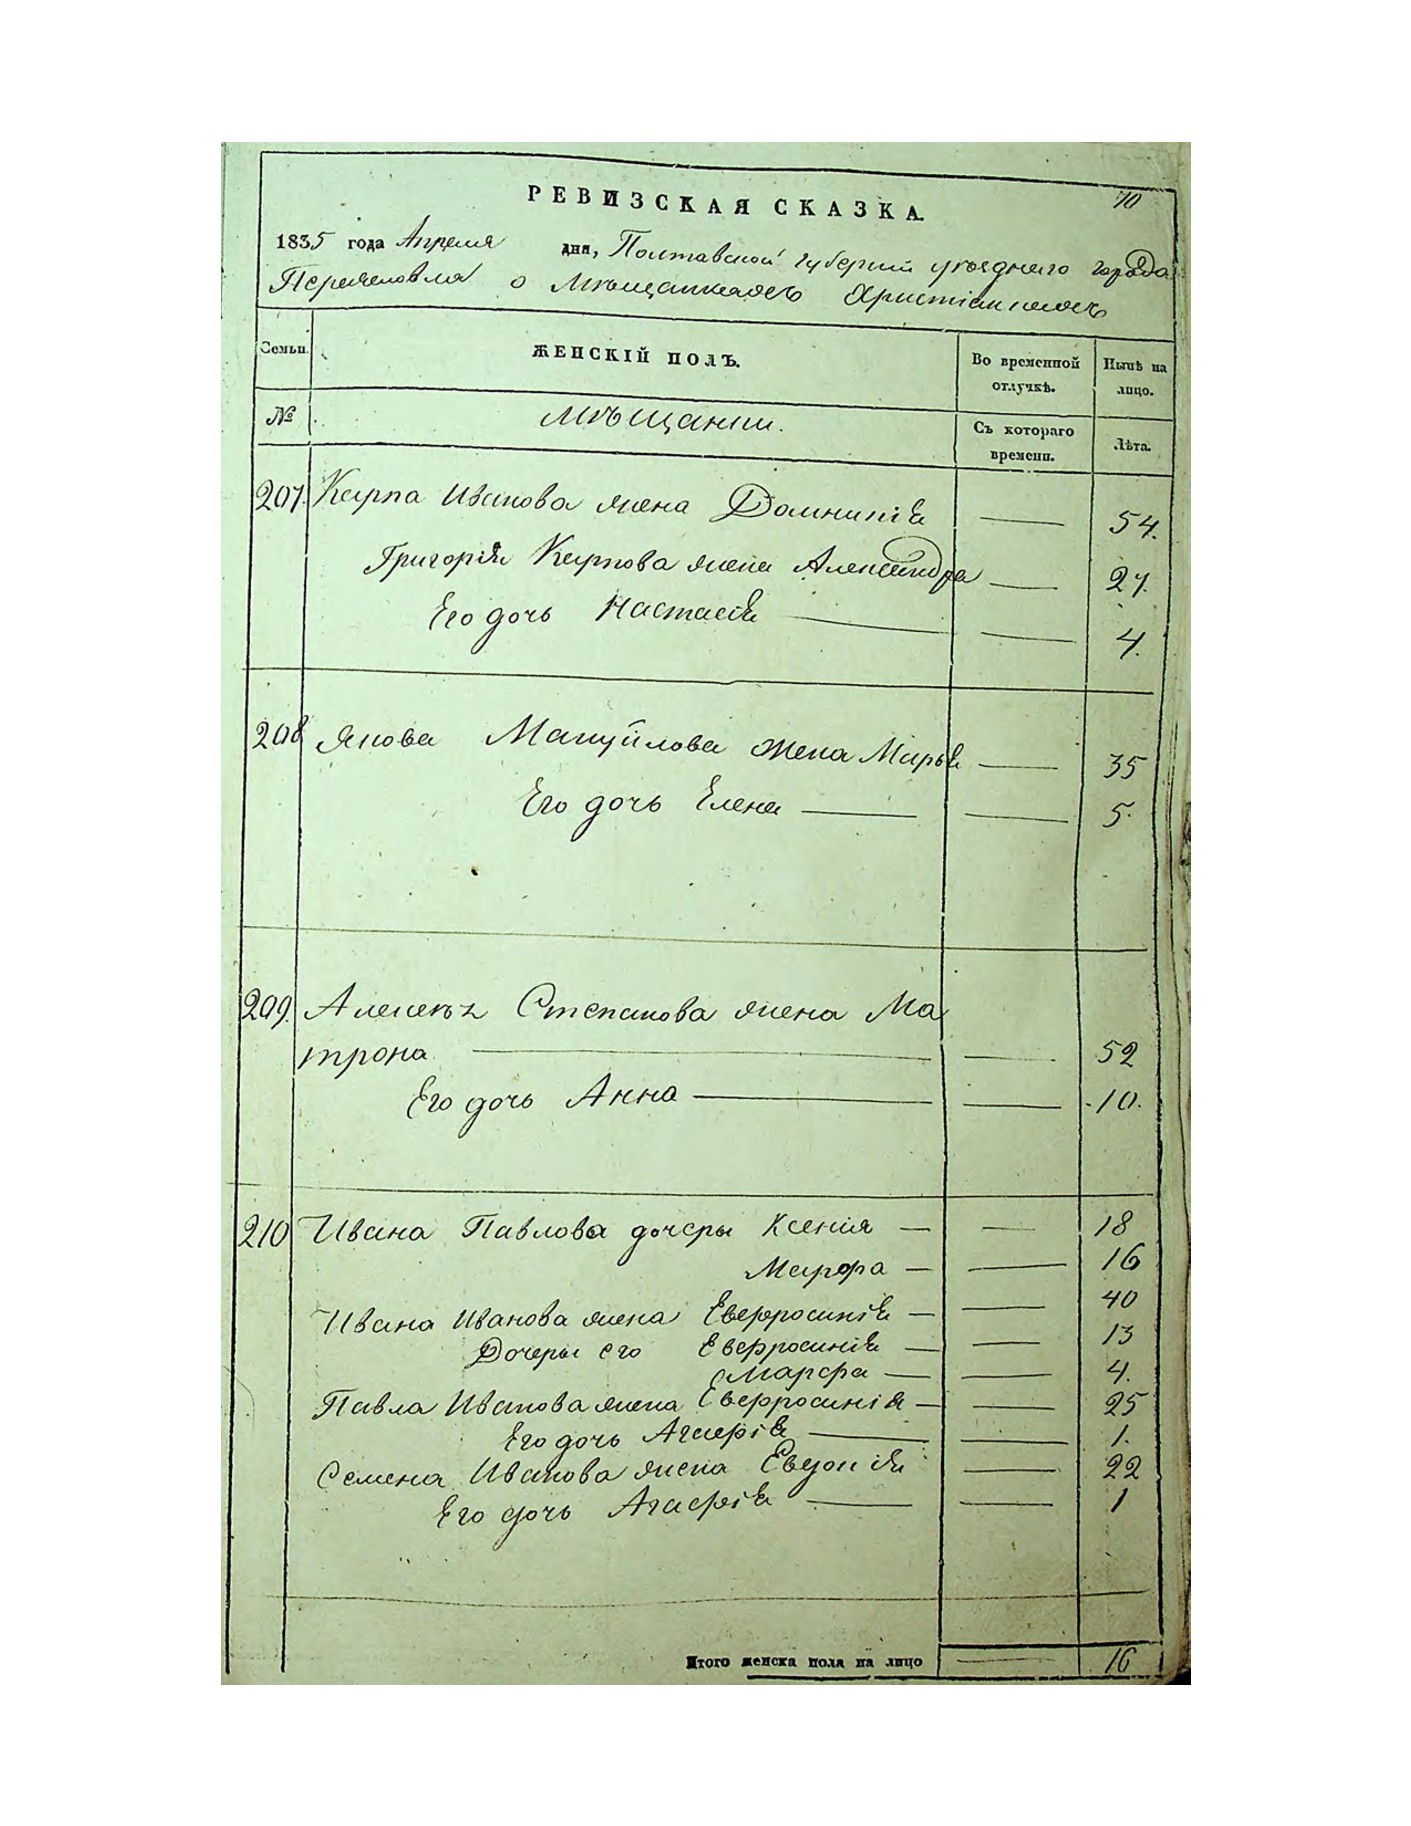 70
РЕВИЗСКАЯ СКАЗКА.
1835 года Апреля дня, Полтавской губернии уезднего города
Переяславля о Мѣщанкахъ Христіянкахъ
Семьи.
ЖЕНСКІЙ ПОЛЪ.
Во временной отлучкѣ.
Нынѣ на лицо.
№
Мѣщанки.
Съ котораго времени.
Лѣта.
207. Карпа Иванова жена Домникія — 54.
Григорія Карпова жена Александра — 27.
Его дочь Настасія — — 4.
208 Якова Мануйлова жена Марья — 35
Его дочь Елена — — 5.
209. Алексѣя Степанова жена Ма
трона — — 52
Его дочь Анна — — 10.
210 Ивана Павлова дочеры Ксенія — — 18
Марфа — — 16
Ивана Иванова жена Евфросинія — — 40
Дочеры его Евфросинія — — 13
Марфа — — 4.
Павла Иванова жена Евфросинія — — 25
Его дочь Агафія — — 1.
Семена Иванова жена Евдокія — 22
Его дочь Агафія — — 1
Итого женска пола на лицо — 16